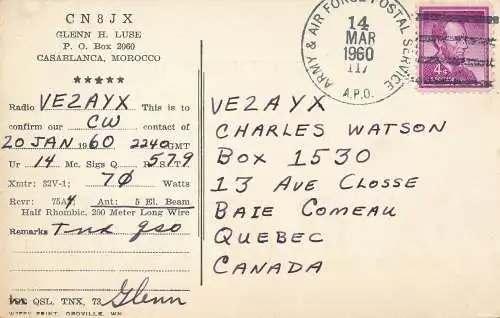 CN8JX
GLENN H. LUSE
P. O. Box 2060
CASABLANCA, MOROCCO
★★★★★
Radio VE2AYX This is to
confirm our CW contact of
20 JAN 1960 2240 GMT
Ur 14 Mc. Sigs Q R.S.T. 579
Xmtr: 32V-1: 70 Watts
Rcvr: 75A4 Ant: 5 El. Beam
Half Rhombic, 200 Meter Long Wire
Remarks Tnx qso
QSL, TNX, 73 Glenn
PRINT, OROVILLE, WN.
ARMY & AIR FORCE POSTAL SERVICE
14
MAR
1960
117
A.P.O.
4¢
VE2AYX
CHARLES WATSON
BOX 1530
13 AVE CLOSSE
BAIE COMEAU
QUEBEC
CANADA